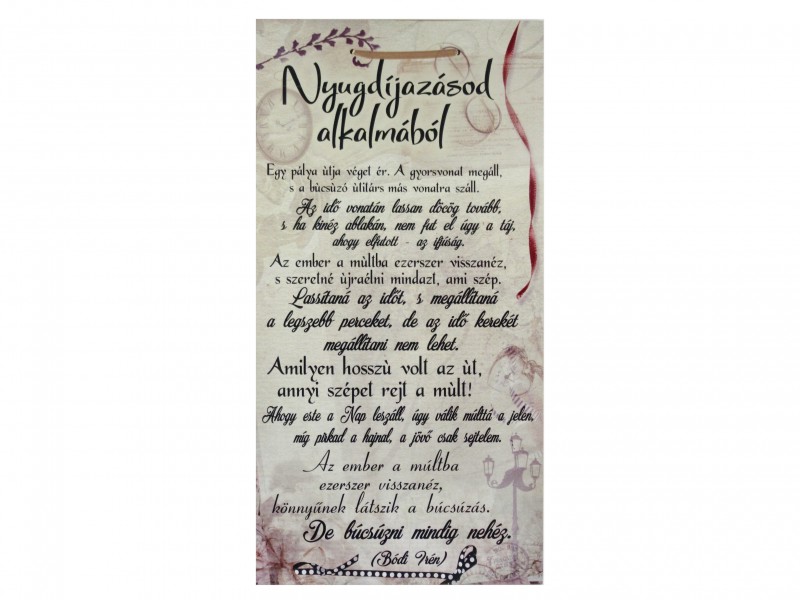 Nyugdíjazásod
alkalmából
Egy pálya ùtja véget ér. A gyorsvonat megáll,
s a bùcsùzó ùtitárs más vonatra száll.
Az idő vonatán lassan döcög tovább,
s ha kinéz ablakán, nem fut el úgy a táj,
ahogy elfutott - az ifjúság.
Az ember a mùltba ezerszer visszanéz,
s szeretné ùjraélni mindazt, ami szép.
Lassítaná az időt, s megállítaná
a legszebb perceket, de az idő kerekét
megállítani nem lehet.
Amilyen hosszù volt az ùt,
annyi szépet rejt a mùlt!
Ahogy este a Nap leszáll, úgy válik múlttá a jelen,
míg pirkad a hajnal, a jövő csak sejtelem.
Az ember a múltba
ezerszer visszanéz,
könnyűnek látszik a búcsúzás.
De búcsúzni mindig nehéz.
(Bódi Irén)